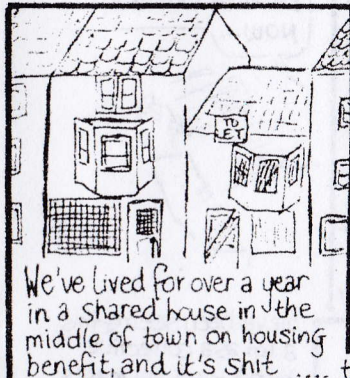 TO
LET
We've Lived for over a year
in a shared house in the
middle of town on housing
benefit, and it's shit .... t